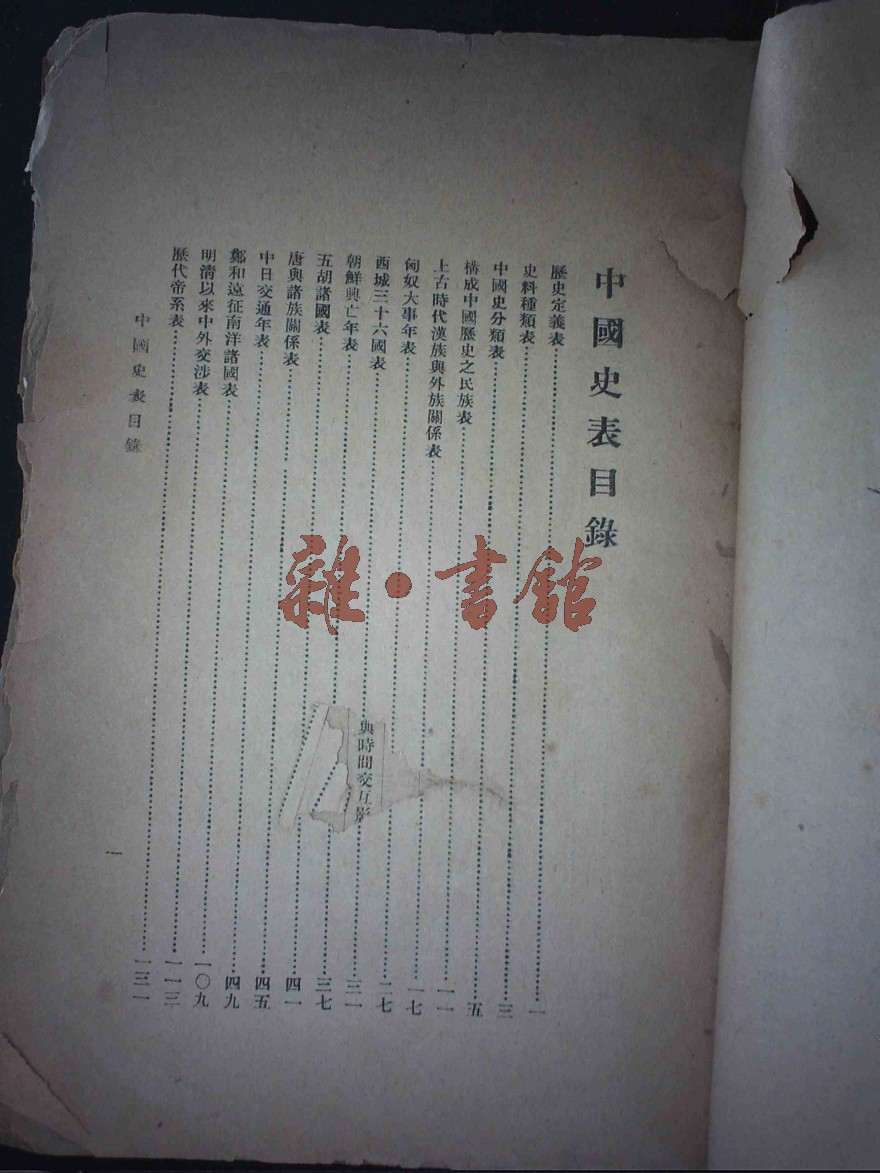 中國史表目錄
歷史定義表……一
史料種類表……三
中國史分類表……五
構成中國歷史之民族表……一一
上古時代漢族與外族關係表……一七
匈奴大事年表……二七
西城三十六國表……三一
朝鮮興亡年表……三七
五胡諸國表……四一
唐與諸族關係表……四五
中日交通年表……四九
鄭和遠征南洋諸國表……一〇九
明清以來中外交涉表……一一三
歷代帝系表……一三一
中國史表目錄
一
與時間交互影
雜·書館